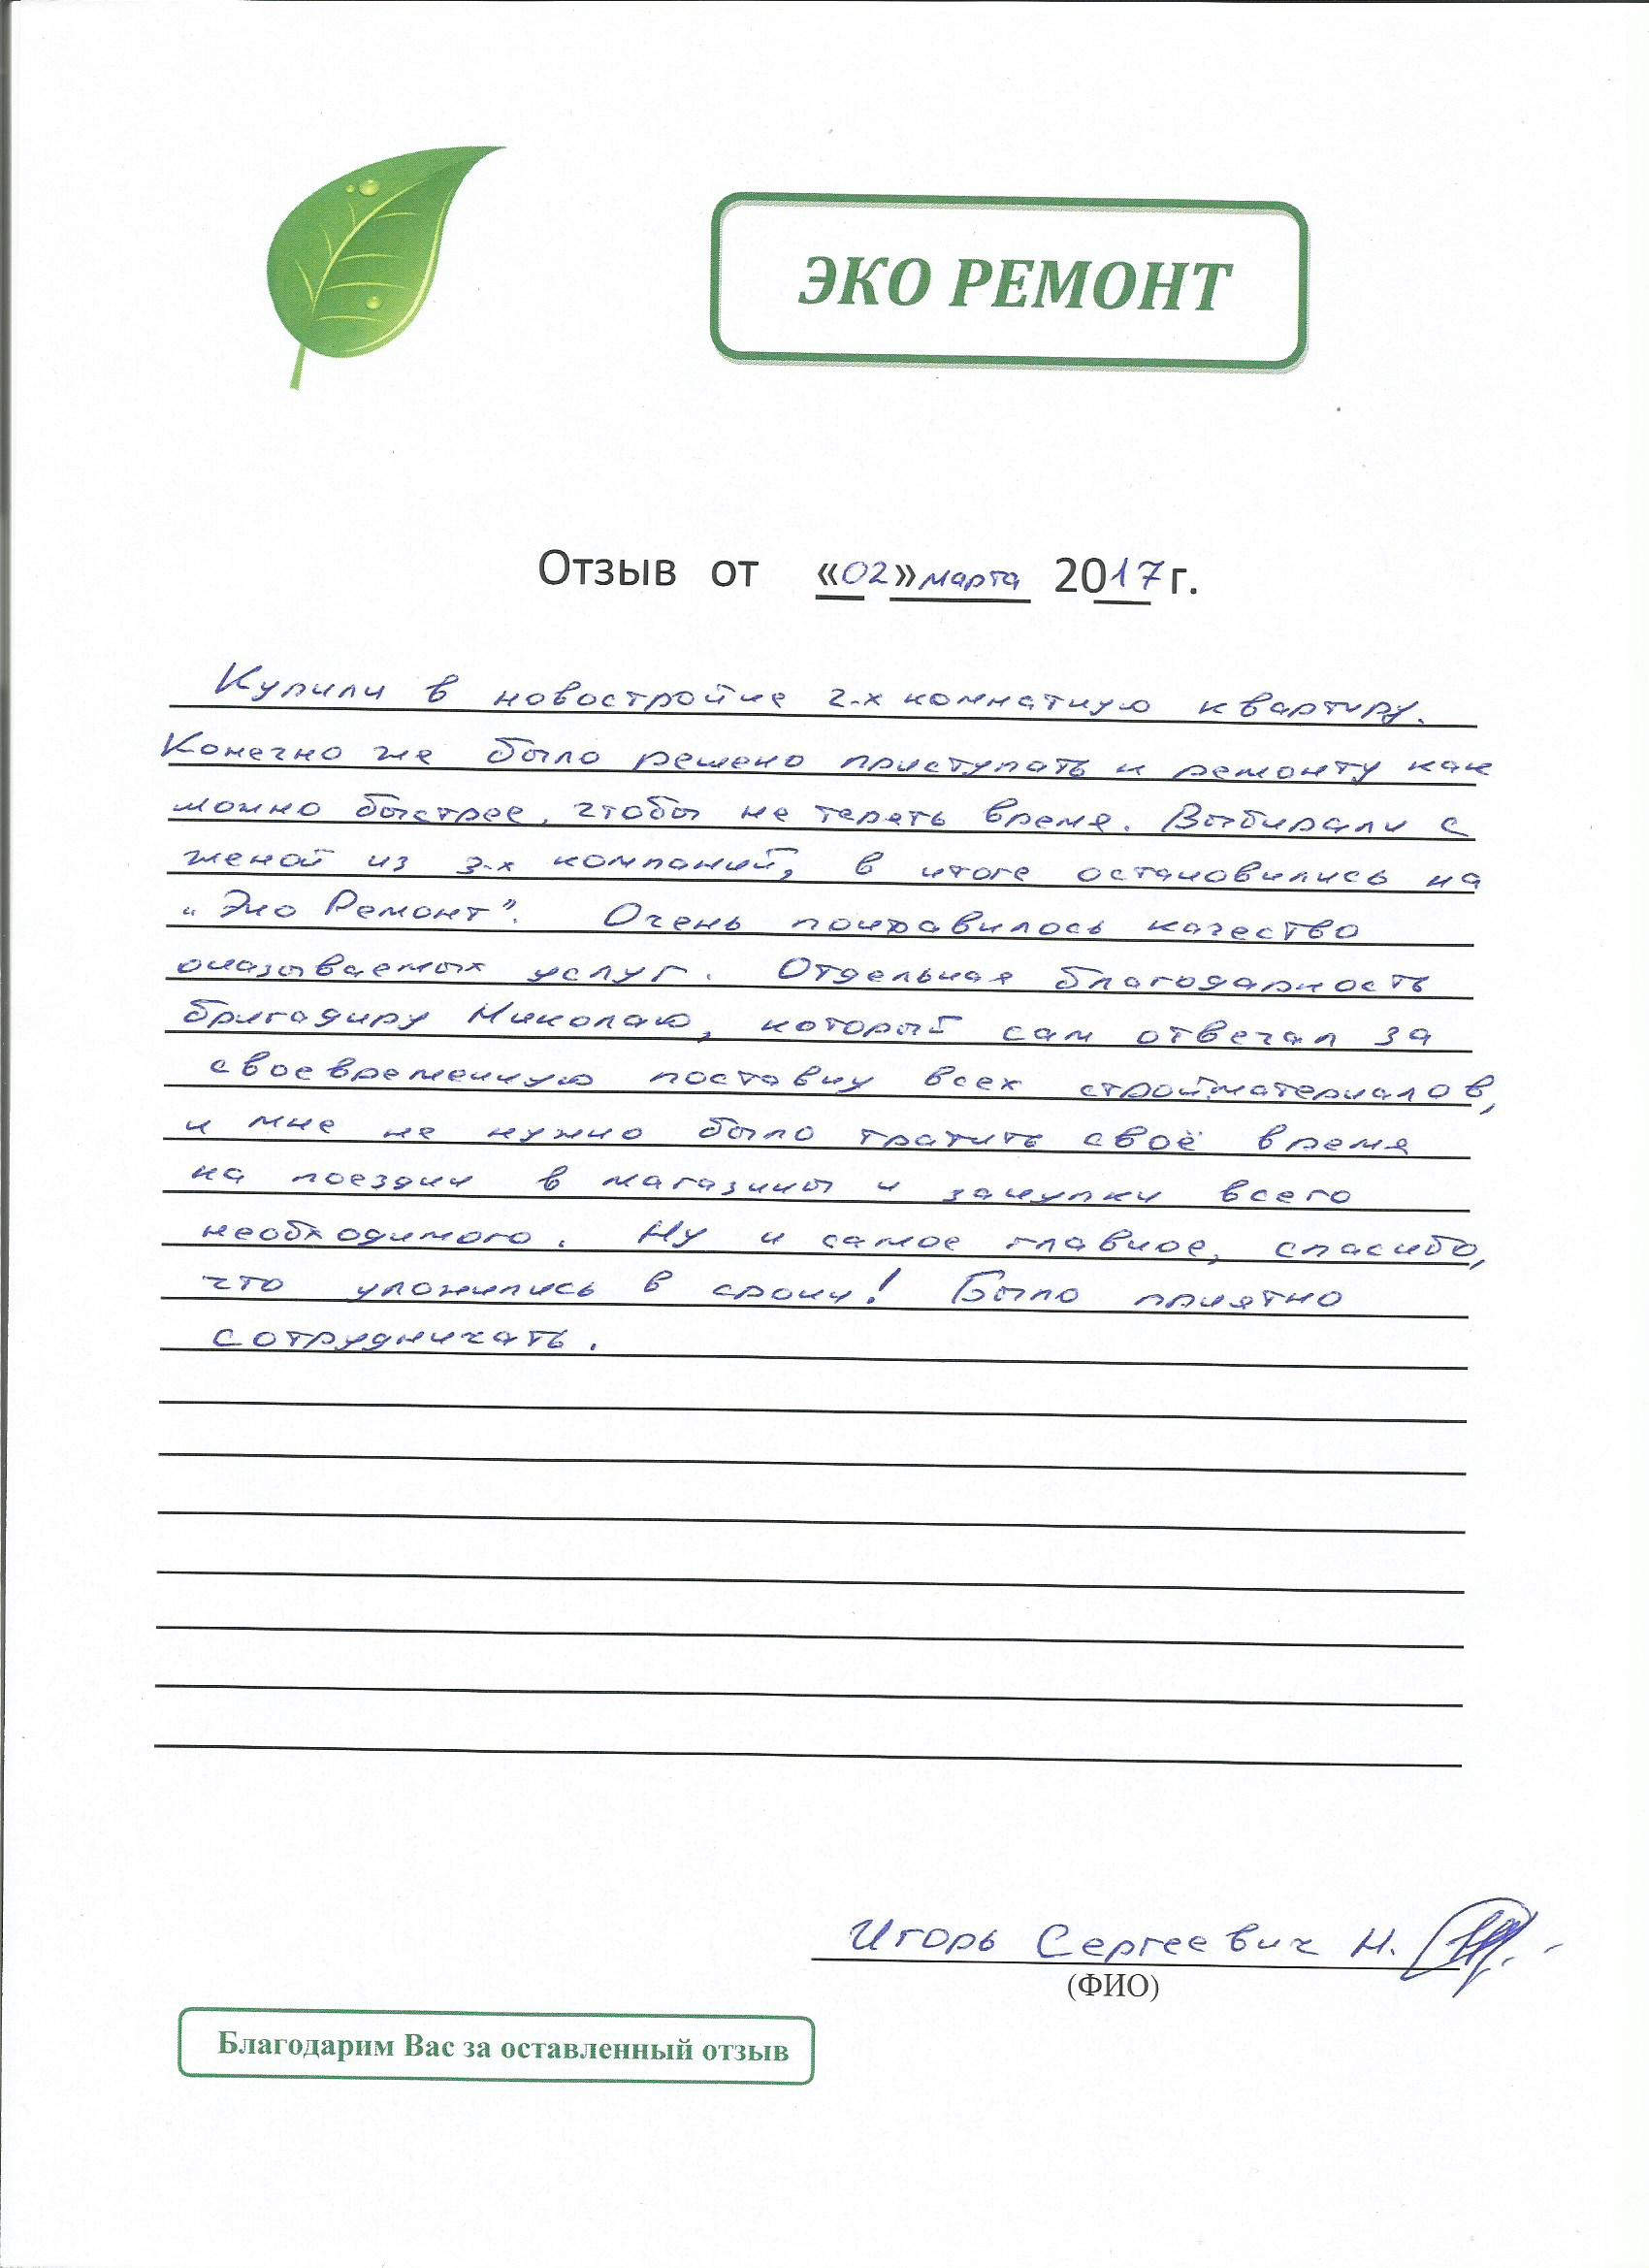 ЭКО РЕМОНТ
Отзыв от «02» марта 2017 г.
Купили в новостройке 2-х комнатную квартиру.
Конечно же было решено приступать к ремонту как
можно быстрее, чтобы не терять время. Выбирали с
женой из 3-х компаний, в итоге остановились на
"Эко Ремонт". Очень понравилось качество
оказываемых услуг. Отдельная благодарность
бригадиру Николаю, который сам отвечал за
своевременную поставку всех стройматериалов,
и мне не нужно было тратить своё время
на поездки в магазины и закупки всего
необходимого. Ну и самое главное, спасибо,
что уложились в сроки! Было приятно
сотрудничать.
Игорь Сергеевич Н.
(ФИО)
Благодарим Вас за оставленный отзыв